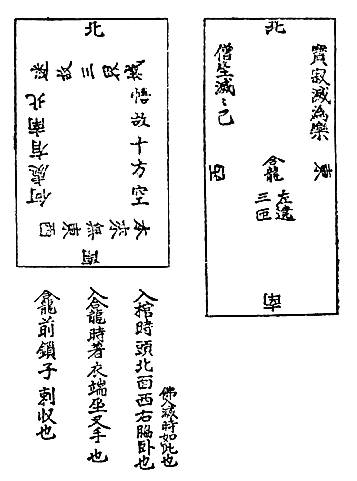 北
寶寂滅為樂
僧生滅〻已
東
西
龕
左遶
三匝
南
北
迷故三界城
悟故十方空
本来無東西
何處有南北
南
入棺時頭北面西右脇卧也
佛入滅時如此也
入龕時著衣端坐叉手也
龕前鎖子剌収也